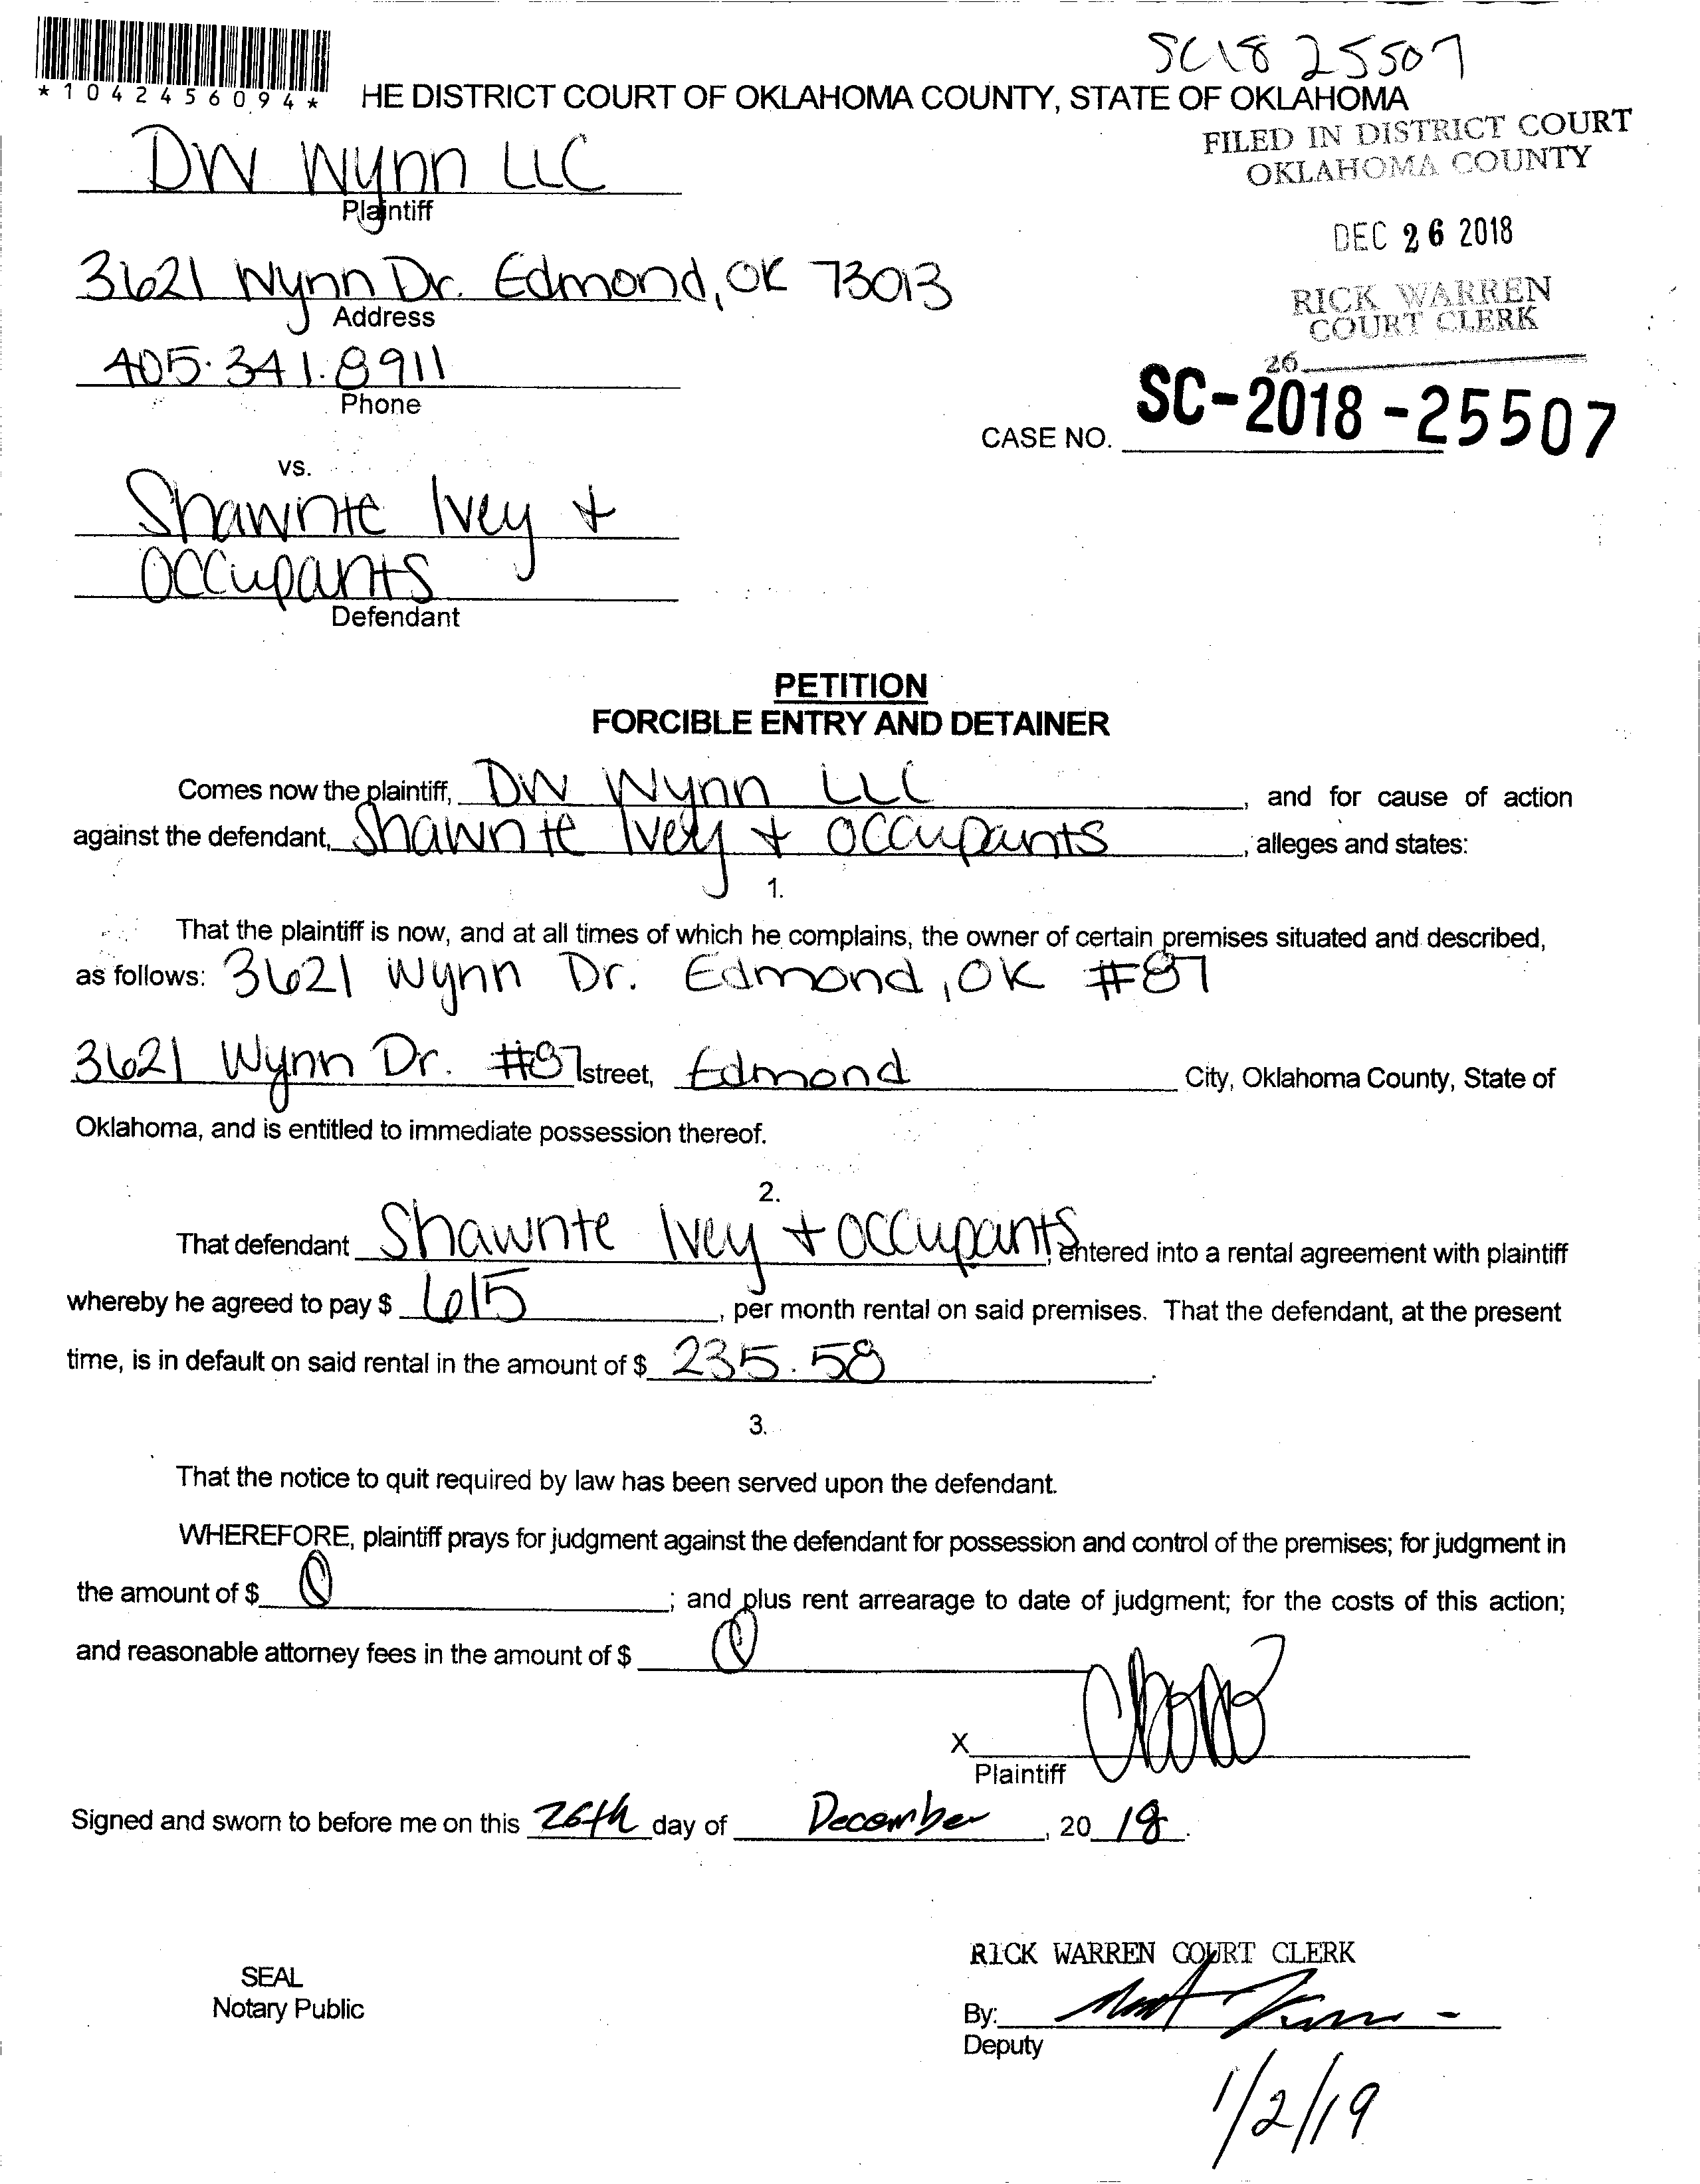 SC18 25507
*1042456094*
HE DISTRICT COURT OF OKLAHOMA COUNTY, STATE OF OKLAHOMA
FILED IN DISTRICT COURT
OKLAHOMA COUNTY
DW Wynn LLC
Plaintiff
DEC 26 2018
3621 Wynn Dr. Edmond, OK 73013
Address
RICK WARREN
COURT CLERK
405.341.8911
Phone
26
CASE NO. SC-2018-25507
vs.
Shawnte Ivey +
Occupants
Defendant
PETITION
FORCIBLE ENTRY AND DETAINER
Comes now the plaintiff, DW Wynn LLC, and for cause of action
against the defendant, Shawnte Ivey + Occupants, alleges and states:
1.
That the plaintiff is now, and at all times of which he complains, the owner of certain premises situated and described,
as follows: 3621 Wynn Dr. Edmond, OK #87
3621 Wynn Dr. #87 street, Edmond City, Oklahoma County, State of
Oklahoma, and is entitled to immediate possession thereof.
2.
That defendant Shawnte Ivey + Occupants, entered into a rental agreement with plaintiff
whereby he agreed to pay $ 615, per month rental on said premises. That the defendant, at the present
time, is in default on said rental in the amount of $ 235.58.
3.
That the notice to quit required by law has been served upon the defendant.
WHEREFORE, plaintiff prays for judgment against the defendant for possession and control of the premises; for judgment in
the amount of $ 0; and plus rent arrearage to date of judgment; for the costs of this action;
and reasonable attorney fees in the amount of $ 0
X
Plaintiff
Signed and sworn to before me on this 26th day of December, 20 18.
RICK WARREN COURT CLERK
SEAL
Notary Public
By:
Deputy
1/2/19